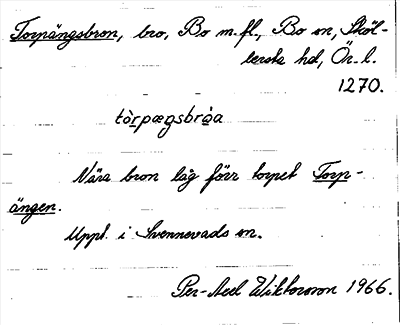 Torpängsbron, bro, Bo m.fl., Bo sn, Sköl-
lersta hd, Ör. l.
1270.
tòrpæŋsbròa
Nära bron låg förr torpet Torp-
ängen.
Uppt. i Svennevads sn.
Per-Axel Wiktorsson 1966.